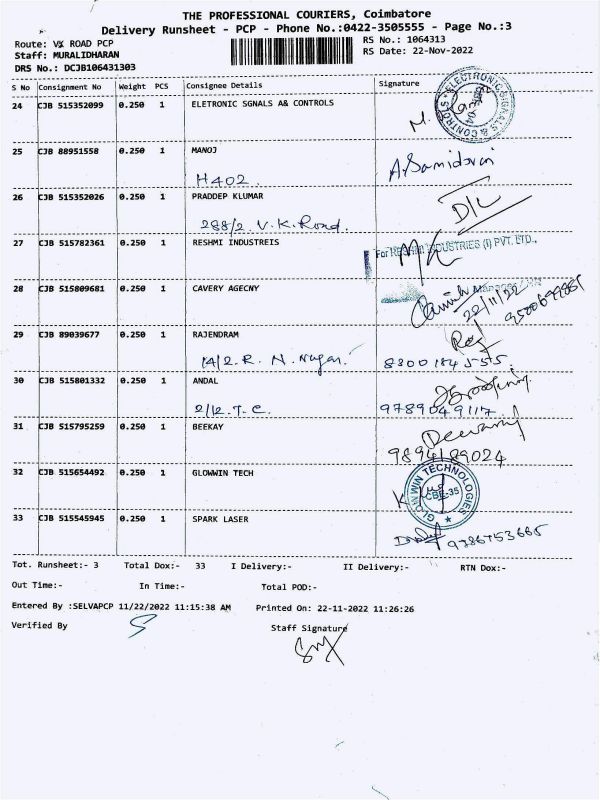 THE PROFESSIONAL COURIERS, Coimbatore
Delivery Runsheet - PCP - Phone No.:0422-3505555 - Page No.:3
Route: VK ROAD PCP
RS No.: 1064313
Staff: MURALIDHARAN
RS Date: 22-Nov-2022
DRS No.: DCJB106431303
S No Consignment No Weight PCS Consignee Details Signature
24 CJB 515352099 0.250 1 ELETRONIC SGNALS A& CONTROLS
ELECTRONIC SIGNALS & CONTROLS
25 CJB 88951558 0.250 1 MANOJ
H402
26 CJB 515352026 0.250 1 PRADDEP KLUMAR
288/2. V.K. Road. D/L
27 CJB 515782361 0.250 1 RESHMI INDUSTREIS
For RESHMI INDUSTRIES (I) PVT. LTD.,
28 CJB 515809681 0.250 1 CAVERY AGECNY
22/11/22
29 CJB 89039677 0.250 1 RAJENDRAM
14/2. R. N. Nagar. 8300184555
30 CJB 515801332 0.250 1 ANDAL
2/12. T. C. 9789049117
31 CJB 515795259 0.250 1 BEEKAY
9894189024
32 CJB 515654492 0.250 1 GLOWWIN TECH
GLOWWIN TECHNOLOGIES
CBE-35
33 CJB 515545945 0.250 1 SPARK LASER
9786753665
Tot. Runsheet:- 3 Total Dox:- 33 I Delivery:- II Delivery:- RTN Dox:-
Out Time:- In Time:- Total POD:-
Entered By :SELVAPCP 11/22/2022 11:15:38 AM Printed On: 22-11-2022 11:26:26
Verified By Staff Signature